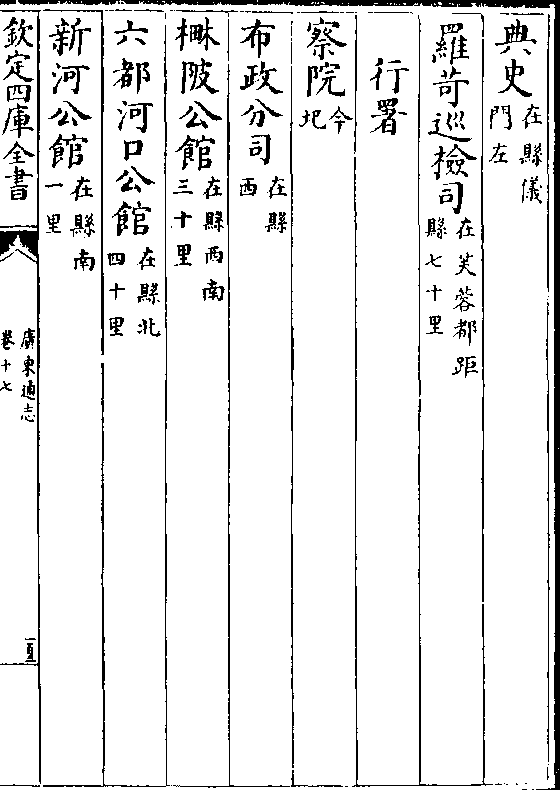 典史在縣儀門左
羅苛巡檢司在芙蓉都距縣七十里
行署
察院今圯
布政分司在縣西
楙陂公館在縣西南三十里
六都河口公館在縣北四十里
新河公館在縣南一里
欽定四庫全書
廣東通志
卷十七